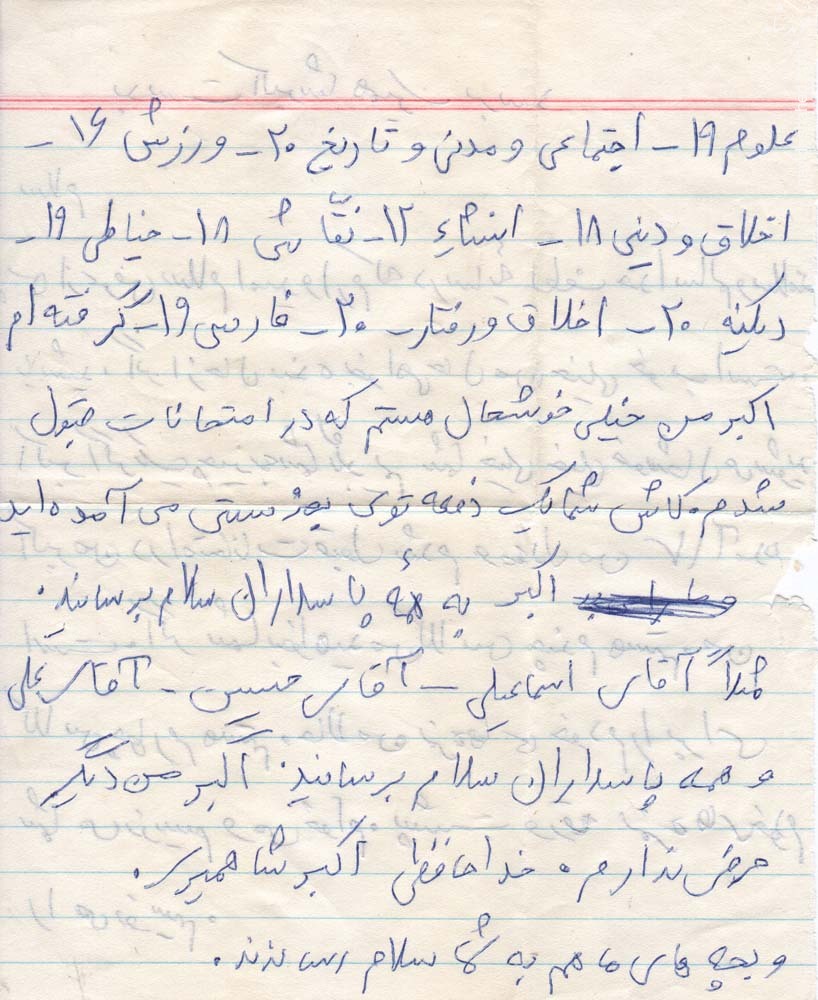 علوم ۱۹ - اجتماعی و مدنی و تاریخ ۲۰ - ورزش ۱۶ -
اخلاق و دینی ۱۸ - انشاءِ ۱۲ - نقّاشی ۱۸ - خیاطی ۱۹ -
دیکته ۲۰ - اخلاق و رفتار - ۲۰ - فارسی ۱۹ - گرفته‌ام
اکبر من خیلی خوشحال هستم که در امتحانات قبول
شدم. کاش شما یک دفعه توی بهزیستی می آمده‌اید
اکبر به همهٔ پاسداران سلام برسانید.
مثلاً آقای اسماعیلی - آقای حسین - آقای علی
و همه پاسداران سلام برسانید. اکبر من دیگر
عرضی ندارم. خداحافظی اکبر شاهمیری.
و بچه های ما هم به شما سلام رساندند.